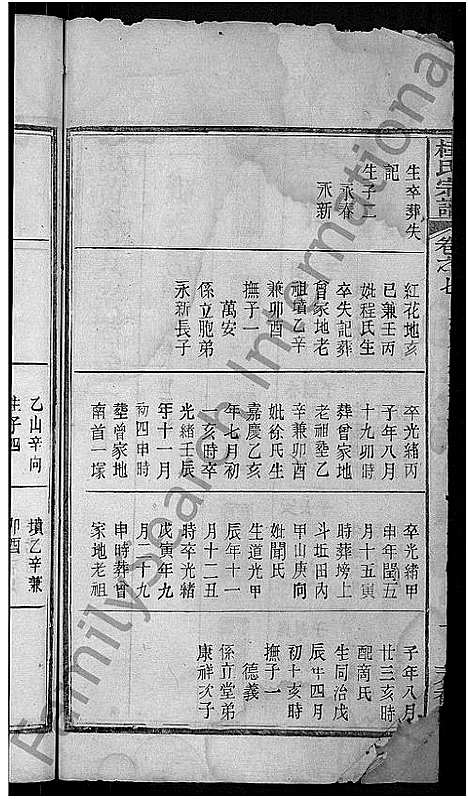 桂氏宗譜
卷之七
生卒葬失
記
生子二
永春
永新
紅花地亥
巳兼壬丙
妣程氏生
卒失記葬
曾家地老
祖墳乙辛
兼卯酉
撫子一
萬安
係立胞弟
永新長子
卒光緒丙
子年八月
十九卯時
葬曾家地
老祖塋乙
辛兼卯酉
妣徐氏生
嘉慶乙亥
年七月初
亥時卒
光緒壬辰
年十一月
初四申時
塟曾家地
南首一塚
卒光緒甲
申年閏五
月十五寅
時葬塝上
斗坵田內
甲山庚向
妣聞氏
生道光甲
辰年十一
月十二丑
時卒光緒
戊寅年九
月二十九
申時葬曾
家地老祖
子年八月
廿三亥時
配商氏
生同治戊
辰年四月
初十亥時
撫子一
德義
係立堂弟
康祥次子
乙山辛向
生子四
墳乙辛兼
卯酉
FamilySearch International